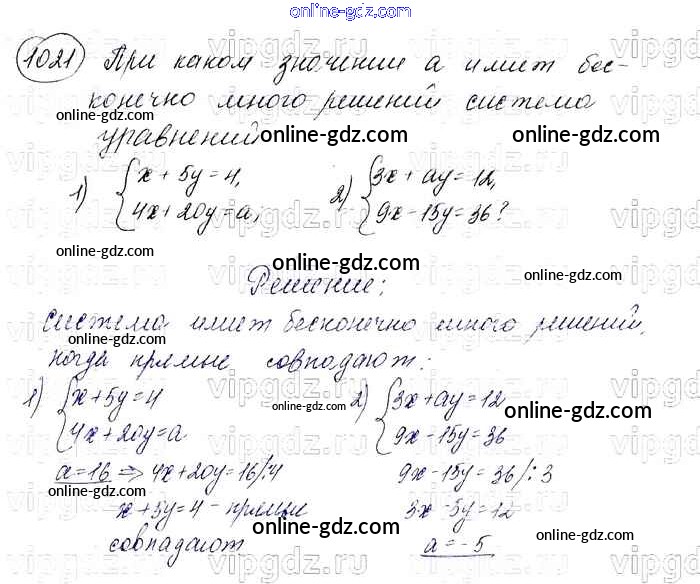 online-gdz.com
1021) При каком значении a имеет бес-
конечно много решений система
уравнений
1) { x + 5y = 4,
4x + 20y = a;
2) { 3x + ay = 12,
9x - 15y = 36?
Решение:
система имеет бесконечно много решений,
когда прямые совпадают:
1) { x + 5y = 4
4x + 20y = a
a = 16 ⇒ 4x + 20y = 16 /:4
x + 5y = 4 - прямые
совпадают
2) { 3x + ay = 12
9x - 15y = 36
9x - 15y = 36 /: 3
3x - 5y = 12
a = -5
online-gdz.com
online-gdz.com
online-gdz.com
online-gdz.com
online-gdz.com
online-gdz.com
online-gdz.com
online-gdz.com
online-gdz.com
online-gdz.com
online-gdz.com
online-gdz.com
online-gdz.com
vipgdz.ru
vipgdz.ru
vipgdz.ru